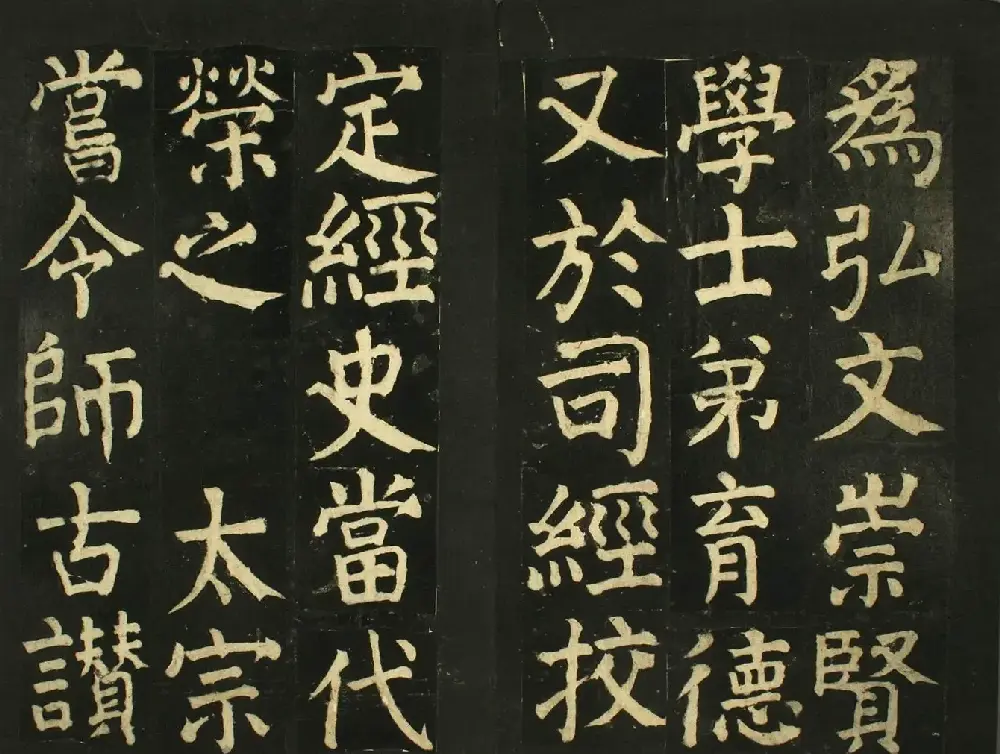 為弘文崇賢
學士弟育德
又於司經挍
定經史當代
榮之 太宗
嘗令師古讃